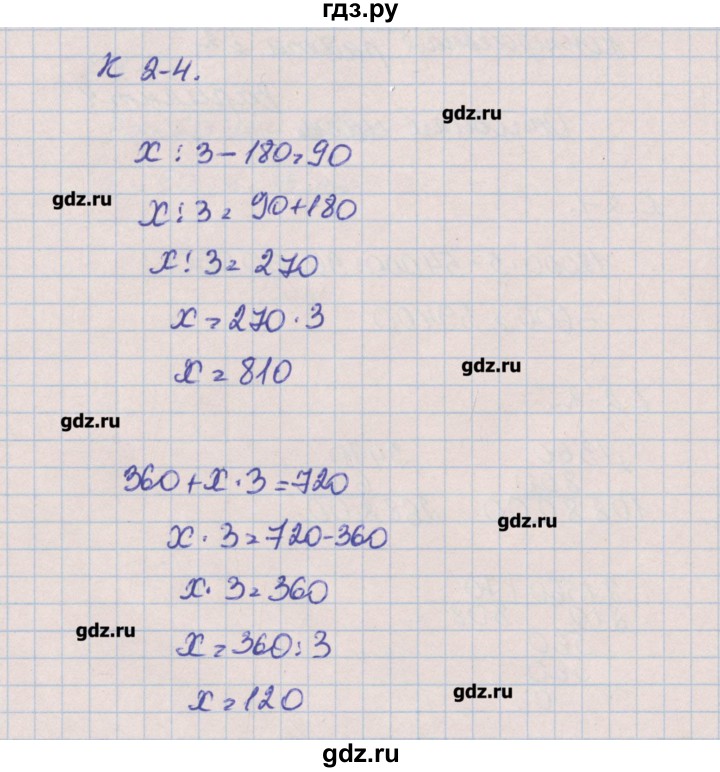 гдз.ру
К 2-4.
gdz.ru
x : 3 - 180 = 90
gdz.ru
x : 3 = 90 + 180
x : 3 = 270
x = 270 · 3
gdz.ru
x = 810
gdz.ru
360 + x · 3 = 720
gdz.ru
x · 3 = 720 - 360
x · 3 = 360
gdz.ru
x = 360 : 3
gdz.ru
x = 120
gdz.ru